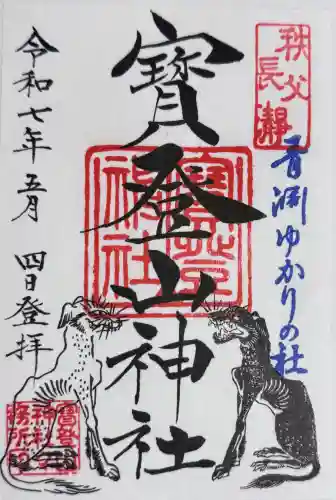 秩父
長瀞
青淵ゆかりの社
寳登山神社
令和七年五月 四日登拝
寳登山
神社
寳登山
神社社
務所印